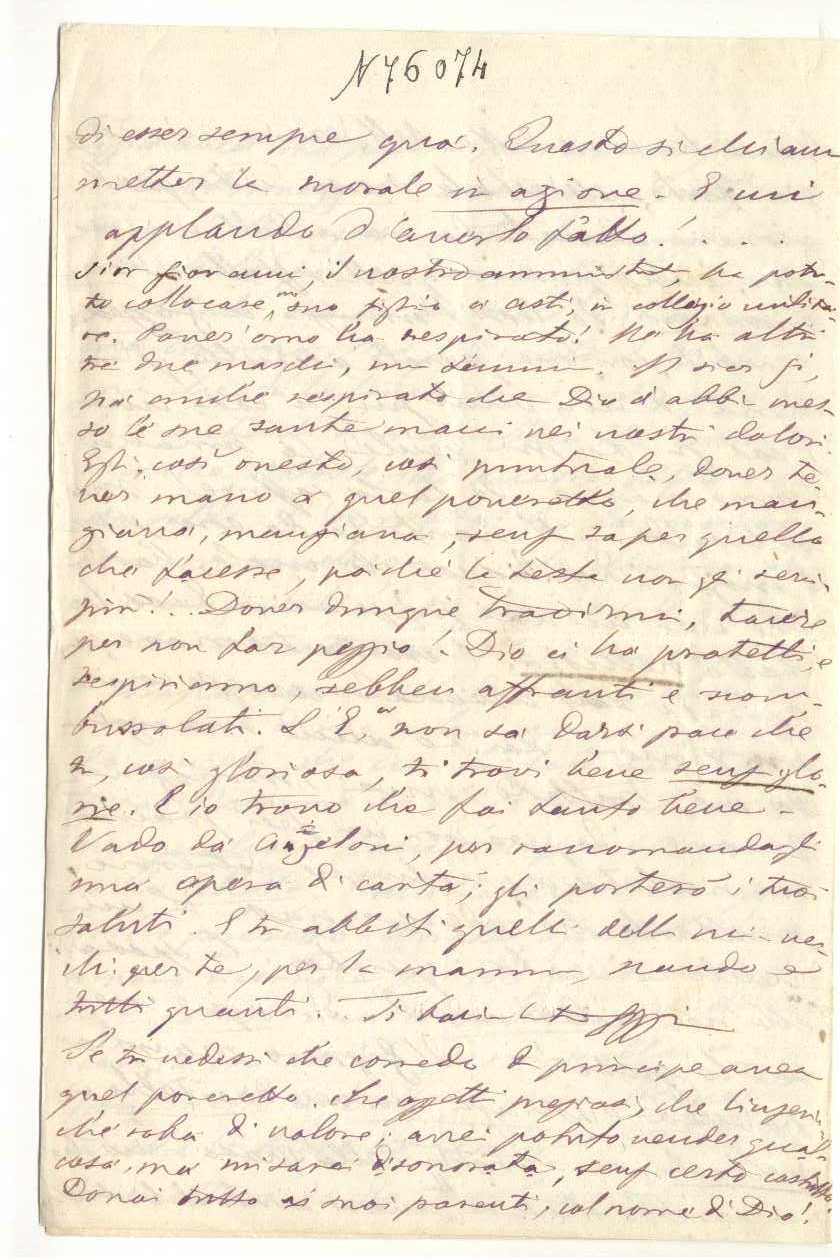 N 76074
di esser sempre qua. Questo si chiam
metter la morale in azione. E mi
applaudo d'averlo fatto! . . .
Sior Giovanni, il nostro ha potu-
to collocare suo figlio a Asti, in collegio milita-
re. Pover'omo ha respirato! Ne ha altri
tre due maschi, una Il sior Gi,
ha anche respirato che Dio ci abbi mes-
so le sue sante mani nei nostri dolori.
Egli, così onesto, così puntuale, dover te-
ner mano a quel poveretto, che man-
giava, mangiava, senz saper quello
che facesse, poiché la testa non gli
più!.. Dover dunque tacere
per non far peggio! Dio ci ha protetti, e
respiriamo, sebben affranti e scom-
bussolati. L'E. non sa darsi pace che
tu, così gloriosa, ti trovi bene senz glo-
rie. E io trovo che fai tanto bene -
Vado da Angeloni, per raccomandagli
una opera di carità; gli porterò i tuoi
saluti. E tu abbiti quelli delli mi vec-
chi per te, per la mamma, Nando e
tutti quanti. Ti baci la tu
Se tu vedessi che corredo di principe avea
quel poveretto. Che oggetti preziosi, che lingeri
che roba di valore; avrei potuto vender qual-
cosa, ma mi sarei disonorata, senz certo costrutto.
Donai tutto ai suoi parenti, col nome di Dio!